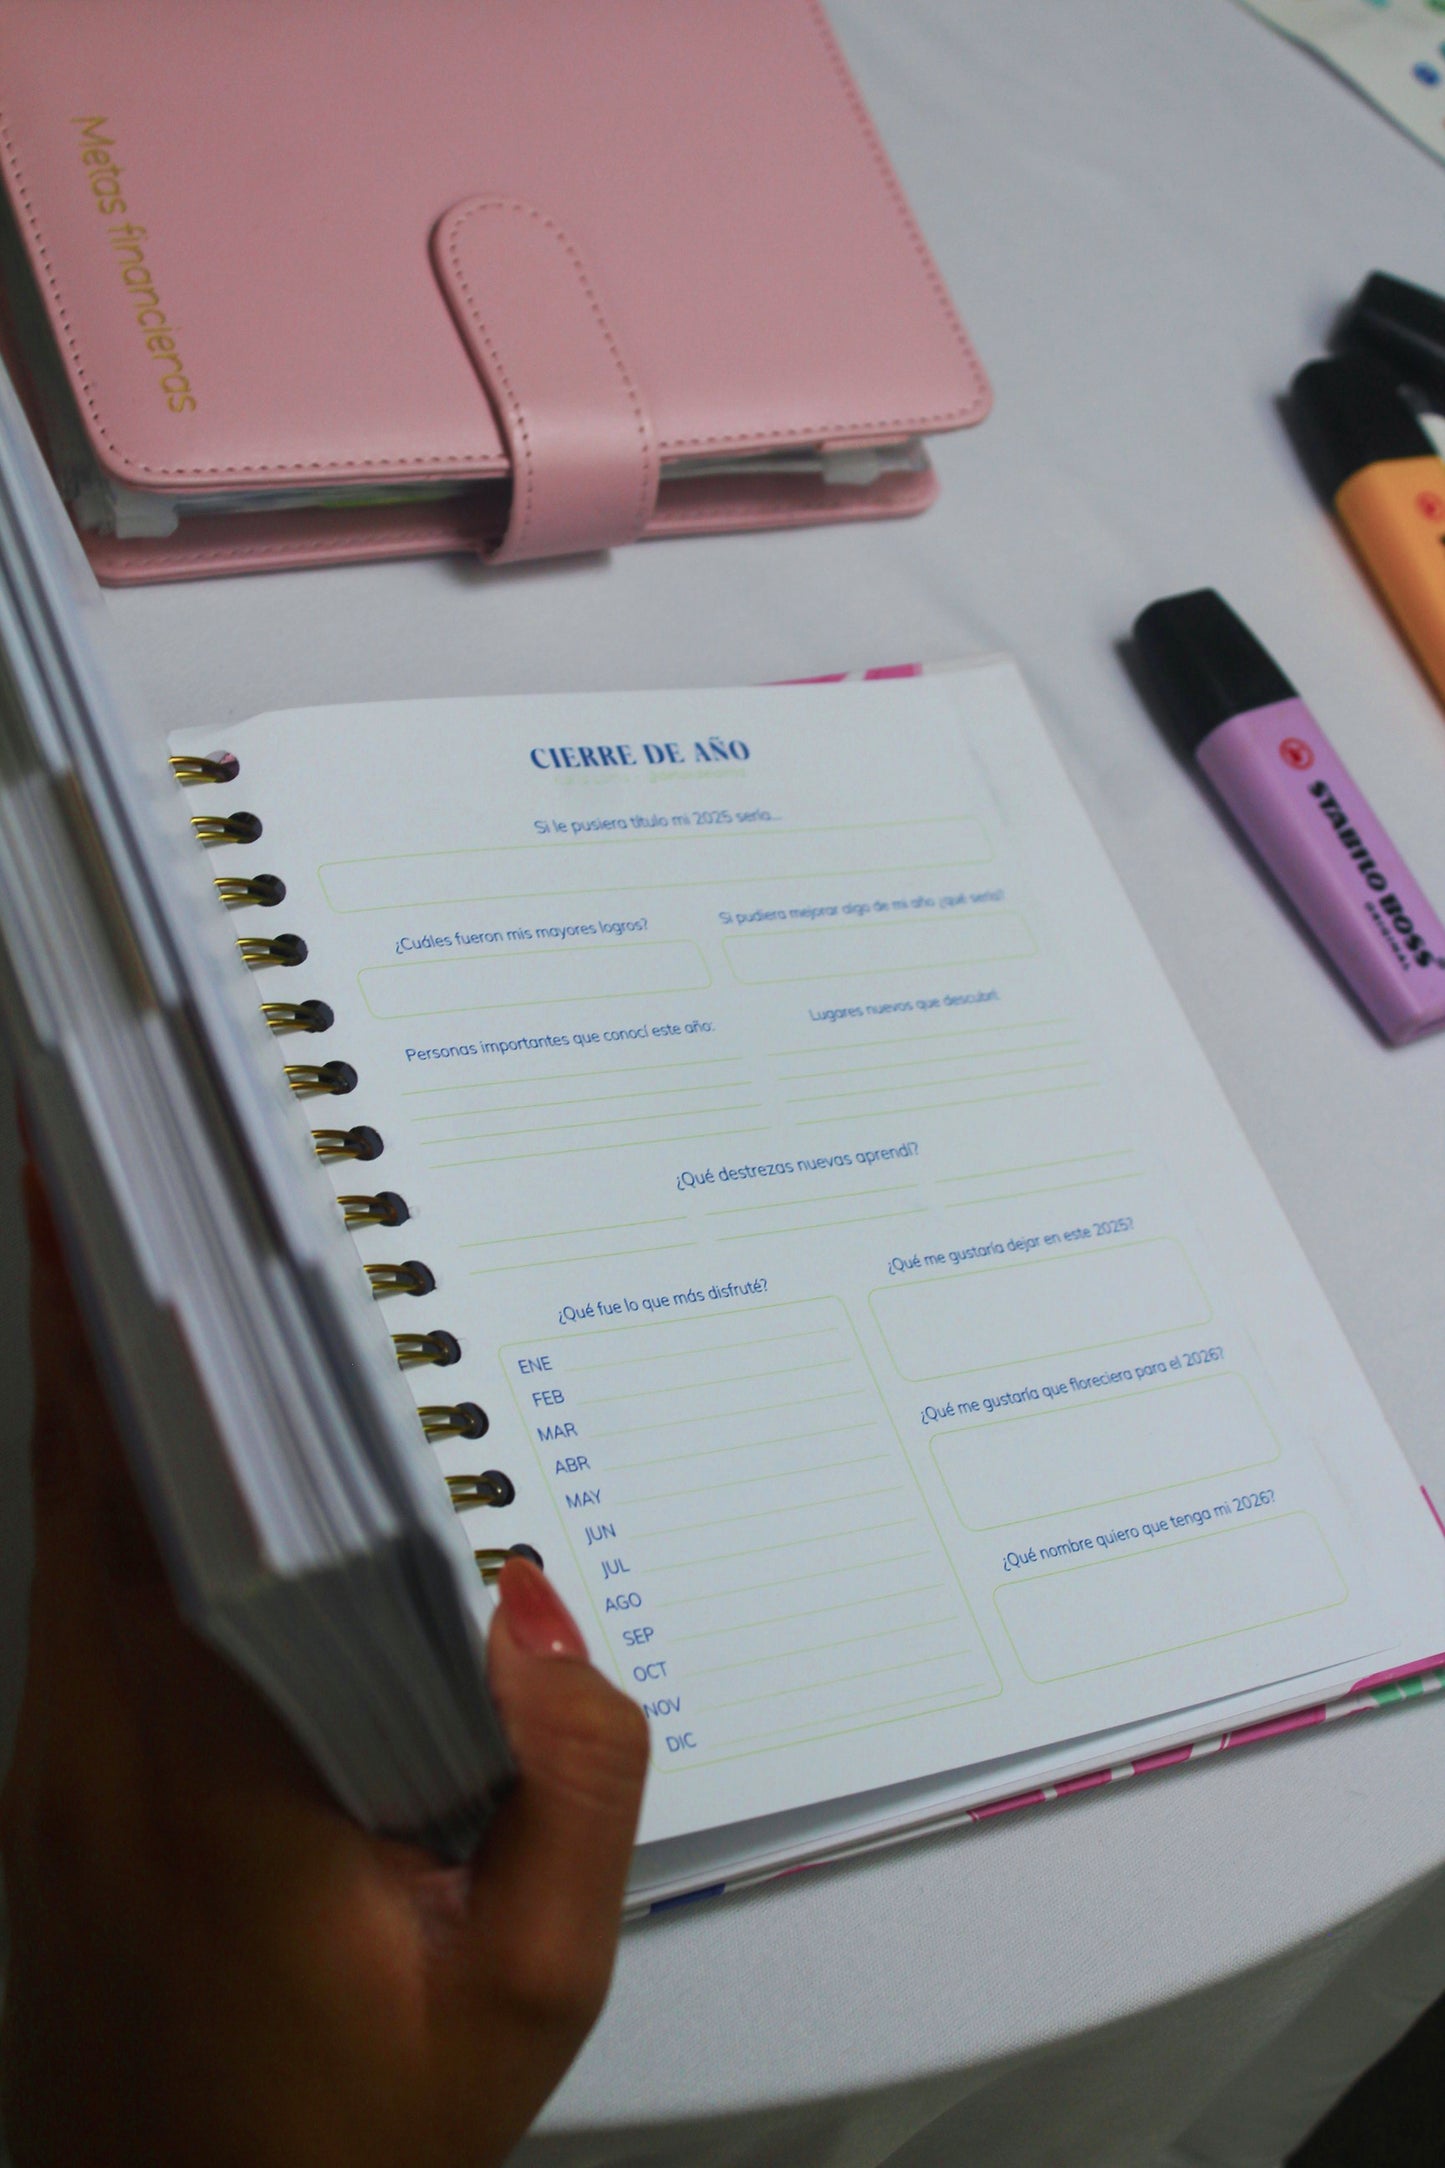 Metas financieras
CIERRE DE AÑO
Si le pusiera título mi 2025 sería...
¿Cuáles fueron mis mayores logros?
Si pudiera mejorar algo de mi año ¿qué sería?
Personas importantes que conocí este año:
Lugares nuevos que descubrí:
¿Qué destrezas nuevas aprendí?
¿Qué fue lo que más disfruté?
ENE
FEB
MAR
ABR
MAY
JUN
JUL
AGO
SEP
OCT
NOV
DIC
¿Qué me gustaría dejar en este 2025?
¿Qué me gustaría que floreciera para el 2026?
¿Qué nombre quiero que tenga mi 2026?
STABILO BOSS
ORIGINAL